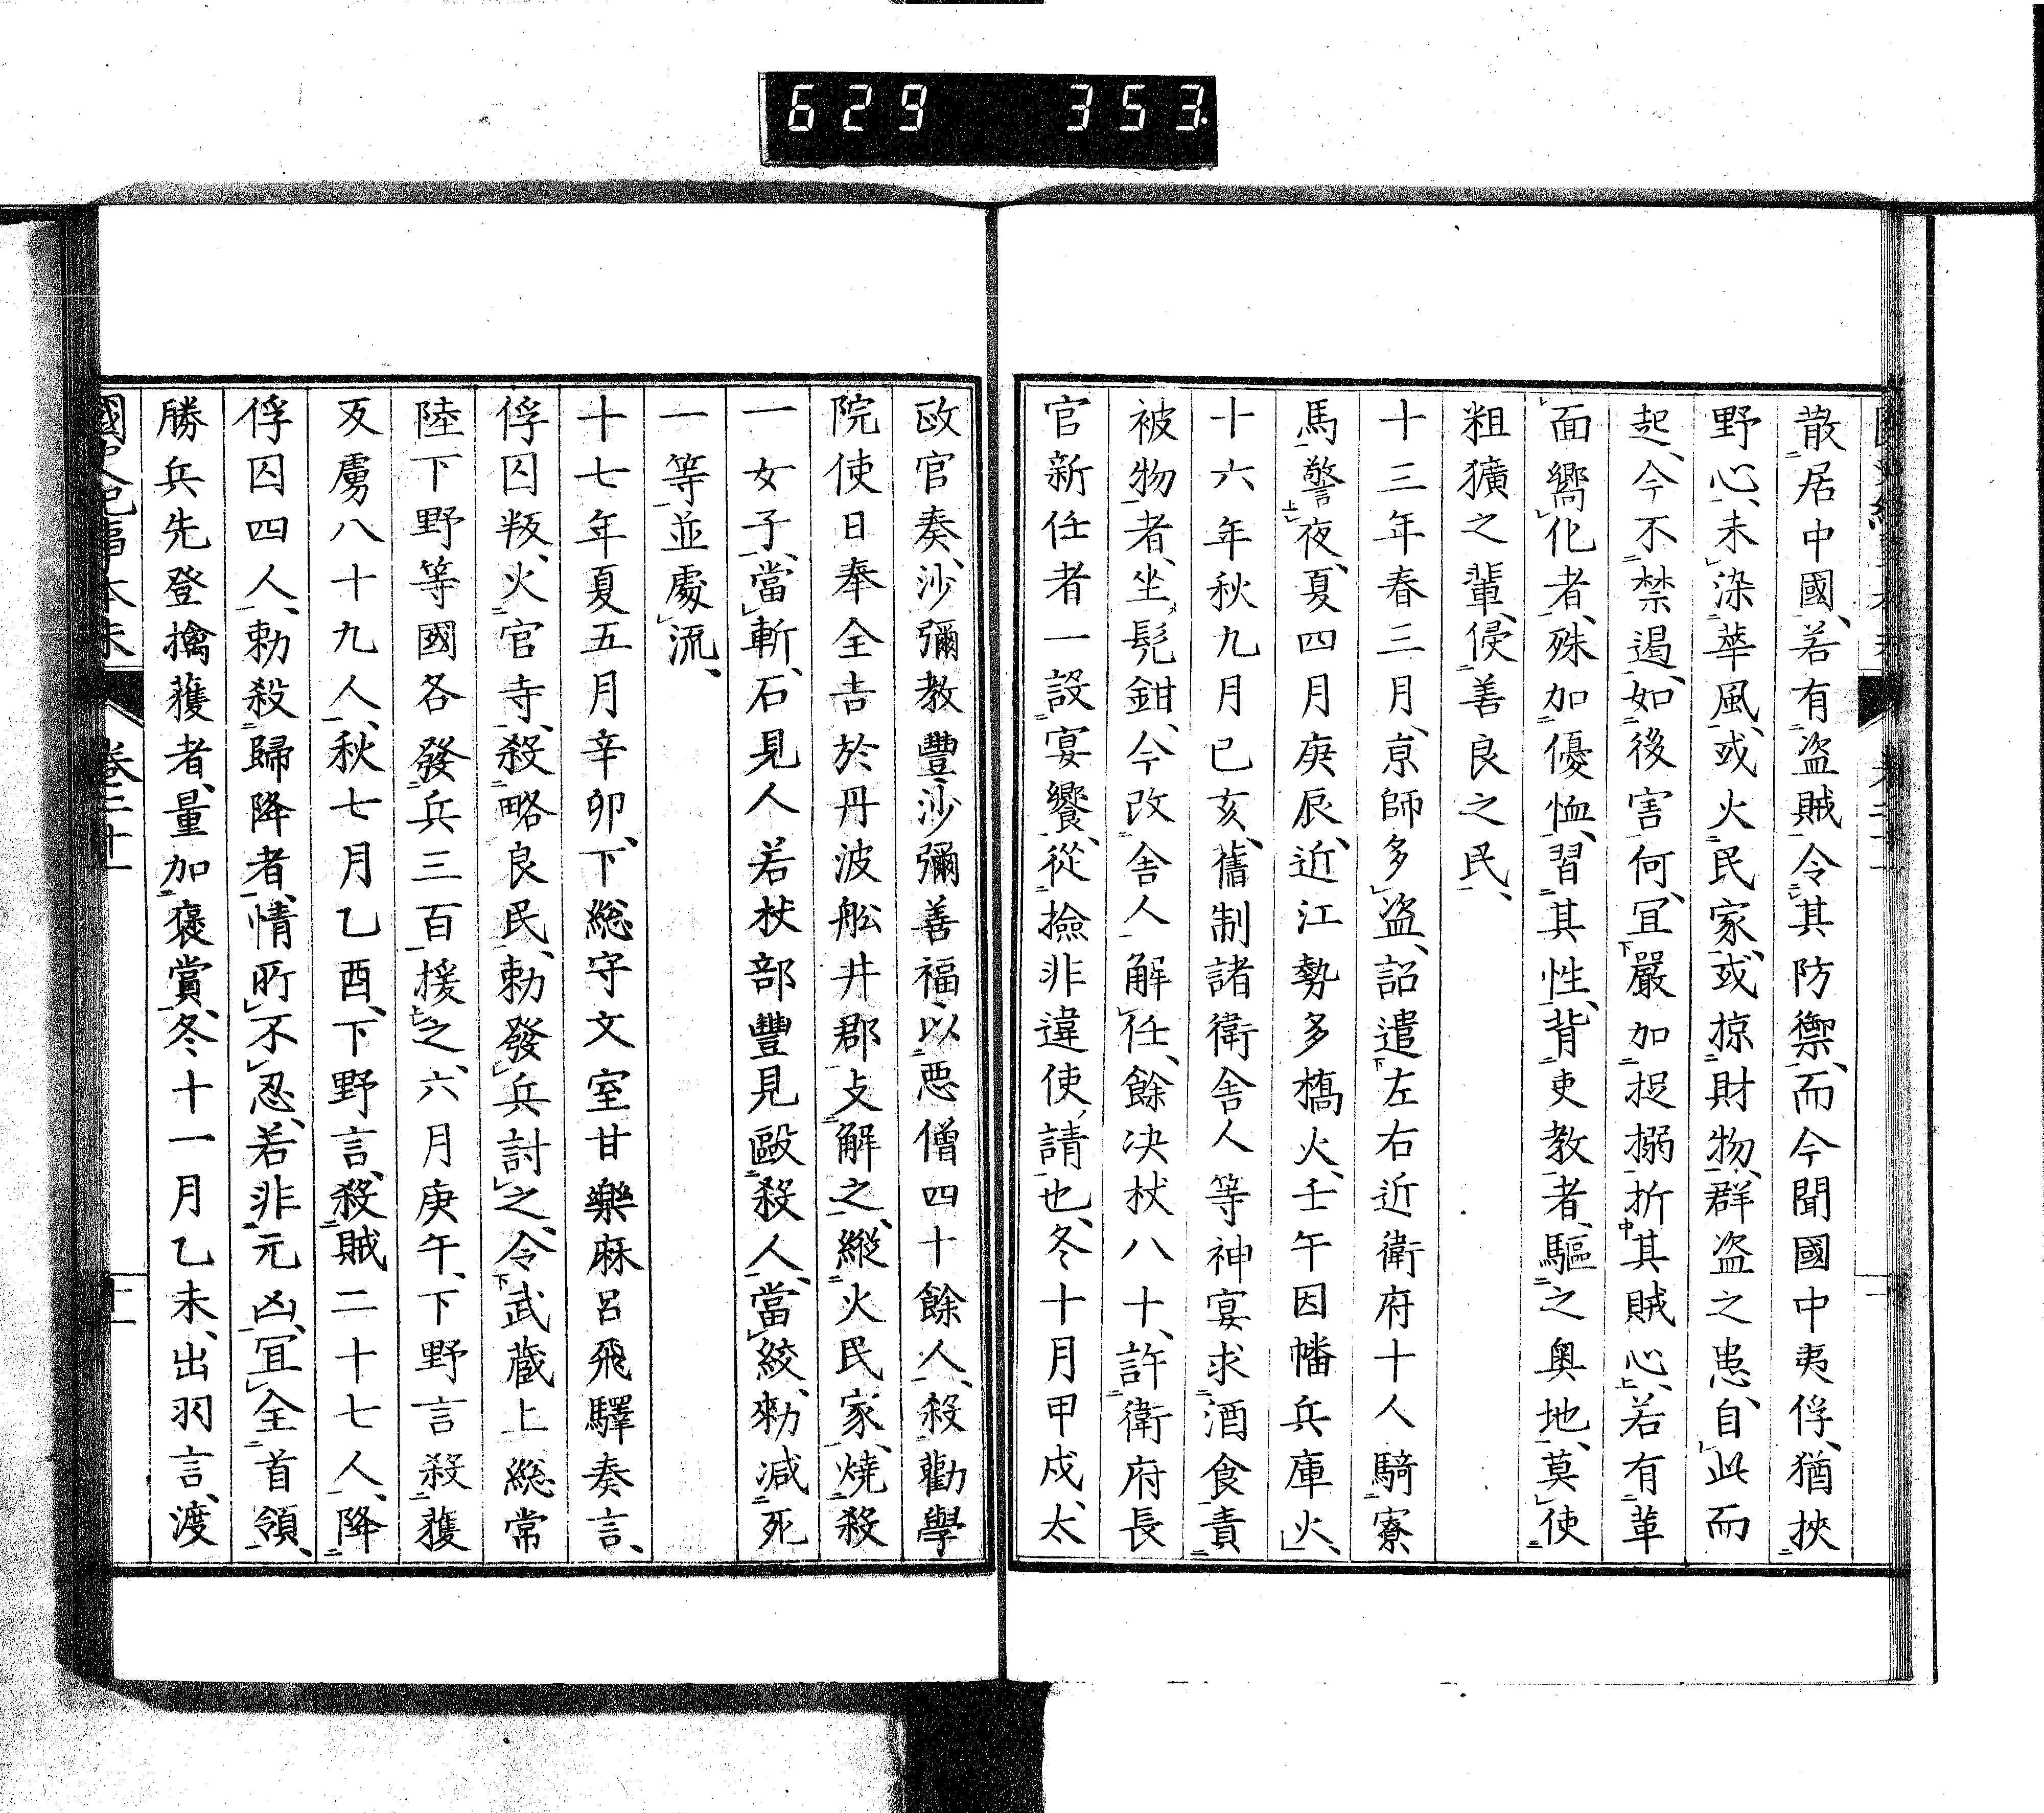 629 353.
散居中國、若有盜賊、令其防禦、而今聞國中夷俘、猶挾
野心、未染華風、或火民家、或掠財物、群盜之患、自此而
起、今不禁遏、如後害何、冝嚴加捉搦、折其賊心、若有革
面嚮化者、殊加優恤、習其性、背吏教者、驅之奥地、莫使
粗獷之輩、侵善良之民、
十三年春三月、京師多盜、詔遣左右近衛府十人騎寮
馬警夜、夏四月庚辰、近江勢多橋火、壬午因幡兵庫火、
十六年秋九月已亥、舊制諸衛舍人等神宴求酒食、責
被物者、坐髡鉗、今改舍人解任、餘决杖八十、許衛府長
官新任者一設宴饗、從撿非違使請也、冬十月甲戌、太
政官奏、沙彌教豐沙彌善福、以悪僧四十餘人、殺勸學
院使日奉全吉於丹波舩井郡、攴解之、縱火民家、燒殺
一女子、當斬、石見人若杖部豐見毆殺人、當絞、勑减死
一等、並處流、
十七年夏五月辛卯、下緫守文室甘樂麻呂飛驛奏言、
俘囚叛、火官寺、殺略良民、勅發兵討之、令武藏上緫常
陸下野等國各發兵三百援之、六月庚午、下野言殺獲
叛虜八十九人、秋七月乙酉、下野言、殺賊二十七人、降
俘囚四人、勅殺歸降者、情所不忍、若非元凶、冝全首領、
勝兵先登擒獲者、量加褒賞、冬十一月乙未、出羽言、渡
國史紀事本末 卷三十一